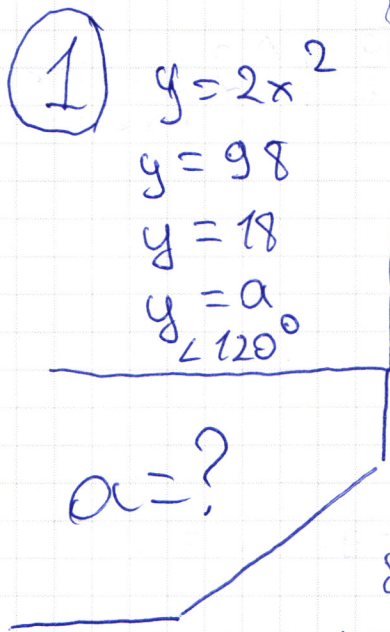 1
y = 2x²
y = 98
y = 18
y = a
<120°
a = ?